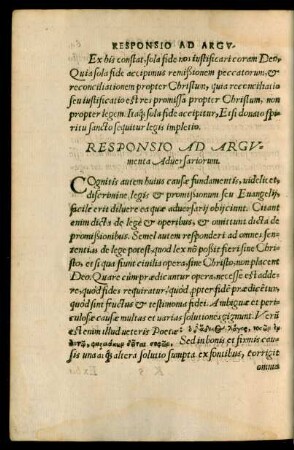 RESPONSIO AD ARGV-
Ex his constat, sola fide nos iustificari coram Deo,
Quia sola fide accipimus remissionem peccatorum, &
reconciliationem propter Christum, quia reconciliatio
seu iustificatio est res promissa propter Christum, non
propter legem. Itaq; sola fide accipitur, Etsi donato spi-
ritu sancto sequitur legis impletio.
RESPONSIO AD ARGV
menta Adversariorum.
COgnitis autem huius causæ fundamentis, uidelicet,
discrimine, legis & promissionum seu Euangelij,
facile erit diluere ea quæ aduersarij obijciunt. Citant
enim dicta de lege & operibus, & omittunt dicta de
promissionibus. Semel autem responderi ad omnes sen-
tentias de lege potest, quod lex nō possit fieri sine Chri
sto, et si qua fiunt ciuilia opera sine Christo, non placent
Deo. Quare cùm prædicantur opera, necesse est adde-
re, quod fides requiratur, quòd ꝓpter fidē prædicētur,
quod sint fructus & testimonia fidei. Ambiguæ et peri
culosæ causæ multas et uarias solutiones gignunt. Verū
est enim illud ueteris Poetæ: ὁ ἄδικος λόγος, νοσῶν ἐν
αὑτῷ, φαρμάκων δεῖται σοφῶν. Sed in bonis et firmis cau-
sis una aut altera solutio sumpta ex fontibus, corrigit
omnia